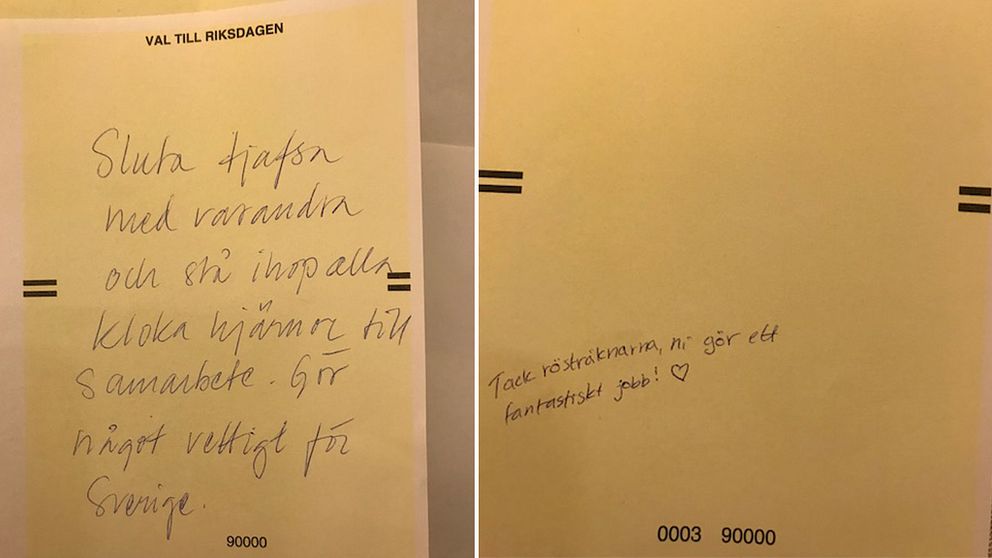 VAL TILL RIKSDAGEN
Sluta tjafsa
med varandra
och slå ihop alla
kloka hjärnor till
samarbete. Gör
något vettigt för
Sverige.
90000
Tack rösträknarna, ni gör ett
fantastiskt jobb! ♡
0003 90000